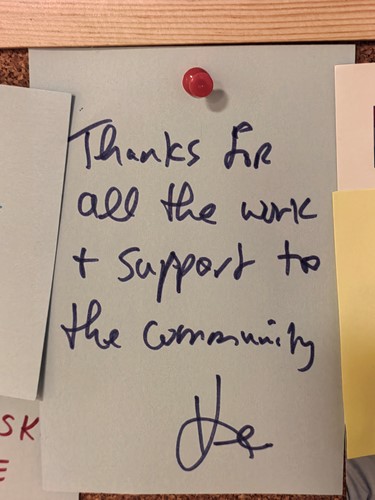 Thanks for
all the work
+ support to
the community
SK
E